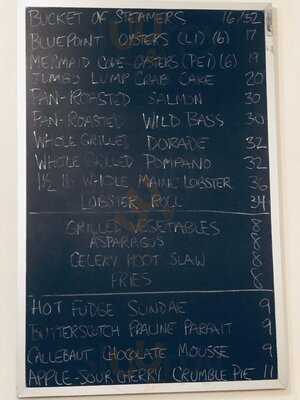 BUCKET OF STEAMERS 16/32
BLUEPOINT OYSTERS (LI) (6) 17
MERMAID COVE OYSTERS (PEI) (6) 19
JUMBO LUMP CRAB CAKE 20
PAN-ROASTED SALMON 30
PAN-ROASTED WILD BASS 30
WHOLE GRILLED DORADE 32
WHOLE GRILLED POMPANO 32
1½ lb WHOLE MAINE LOBSTER 36
LOBSTER ROLL 34
GRILLED VEGETABLES 8
ASPARAGUS 8
CELERY ROOT SLAW 8
FRIES 8
HOT FUDGE SUNDAE 9
BUTTERSCOTCH PRALINE PARFAIT 9
CALLEBAUT CHOCOLATE MOUSSE 9
APPLE-SOUR CHERRY CRUMBLE PIE 11